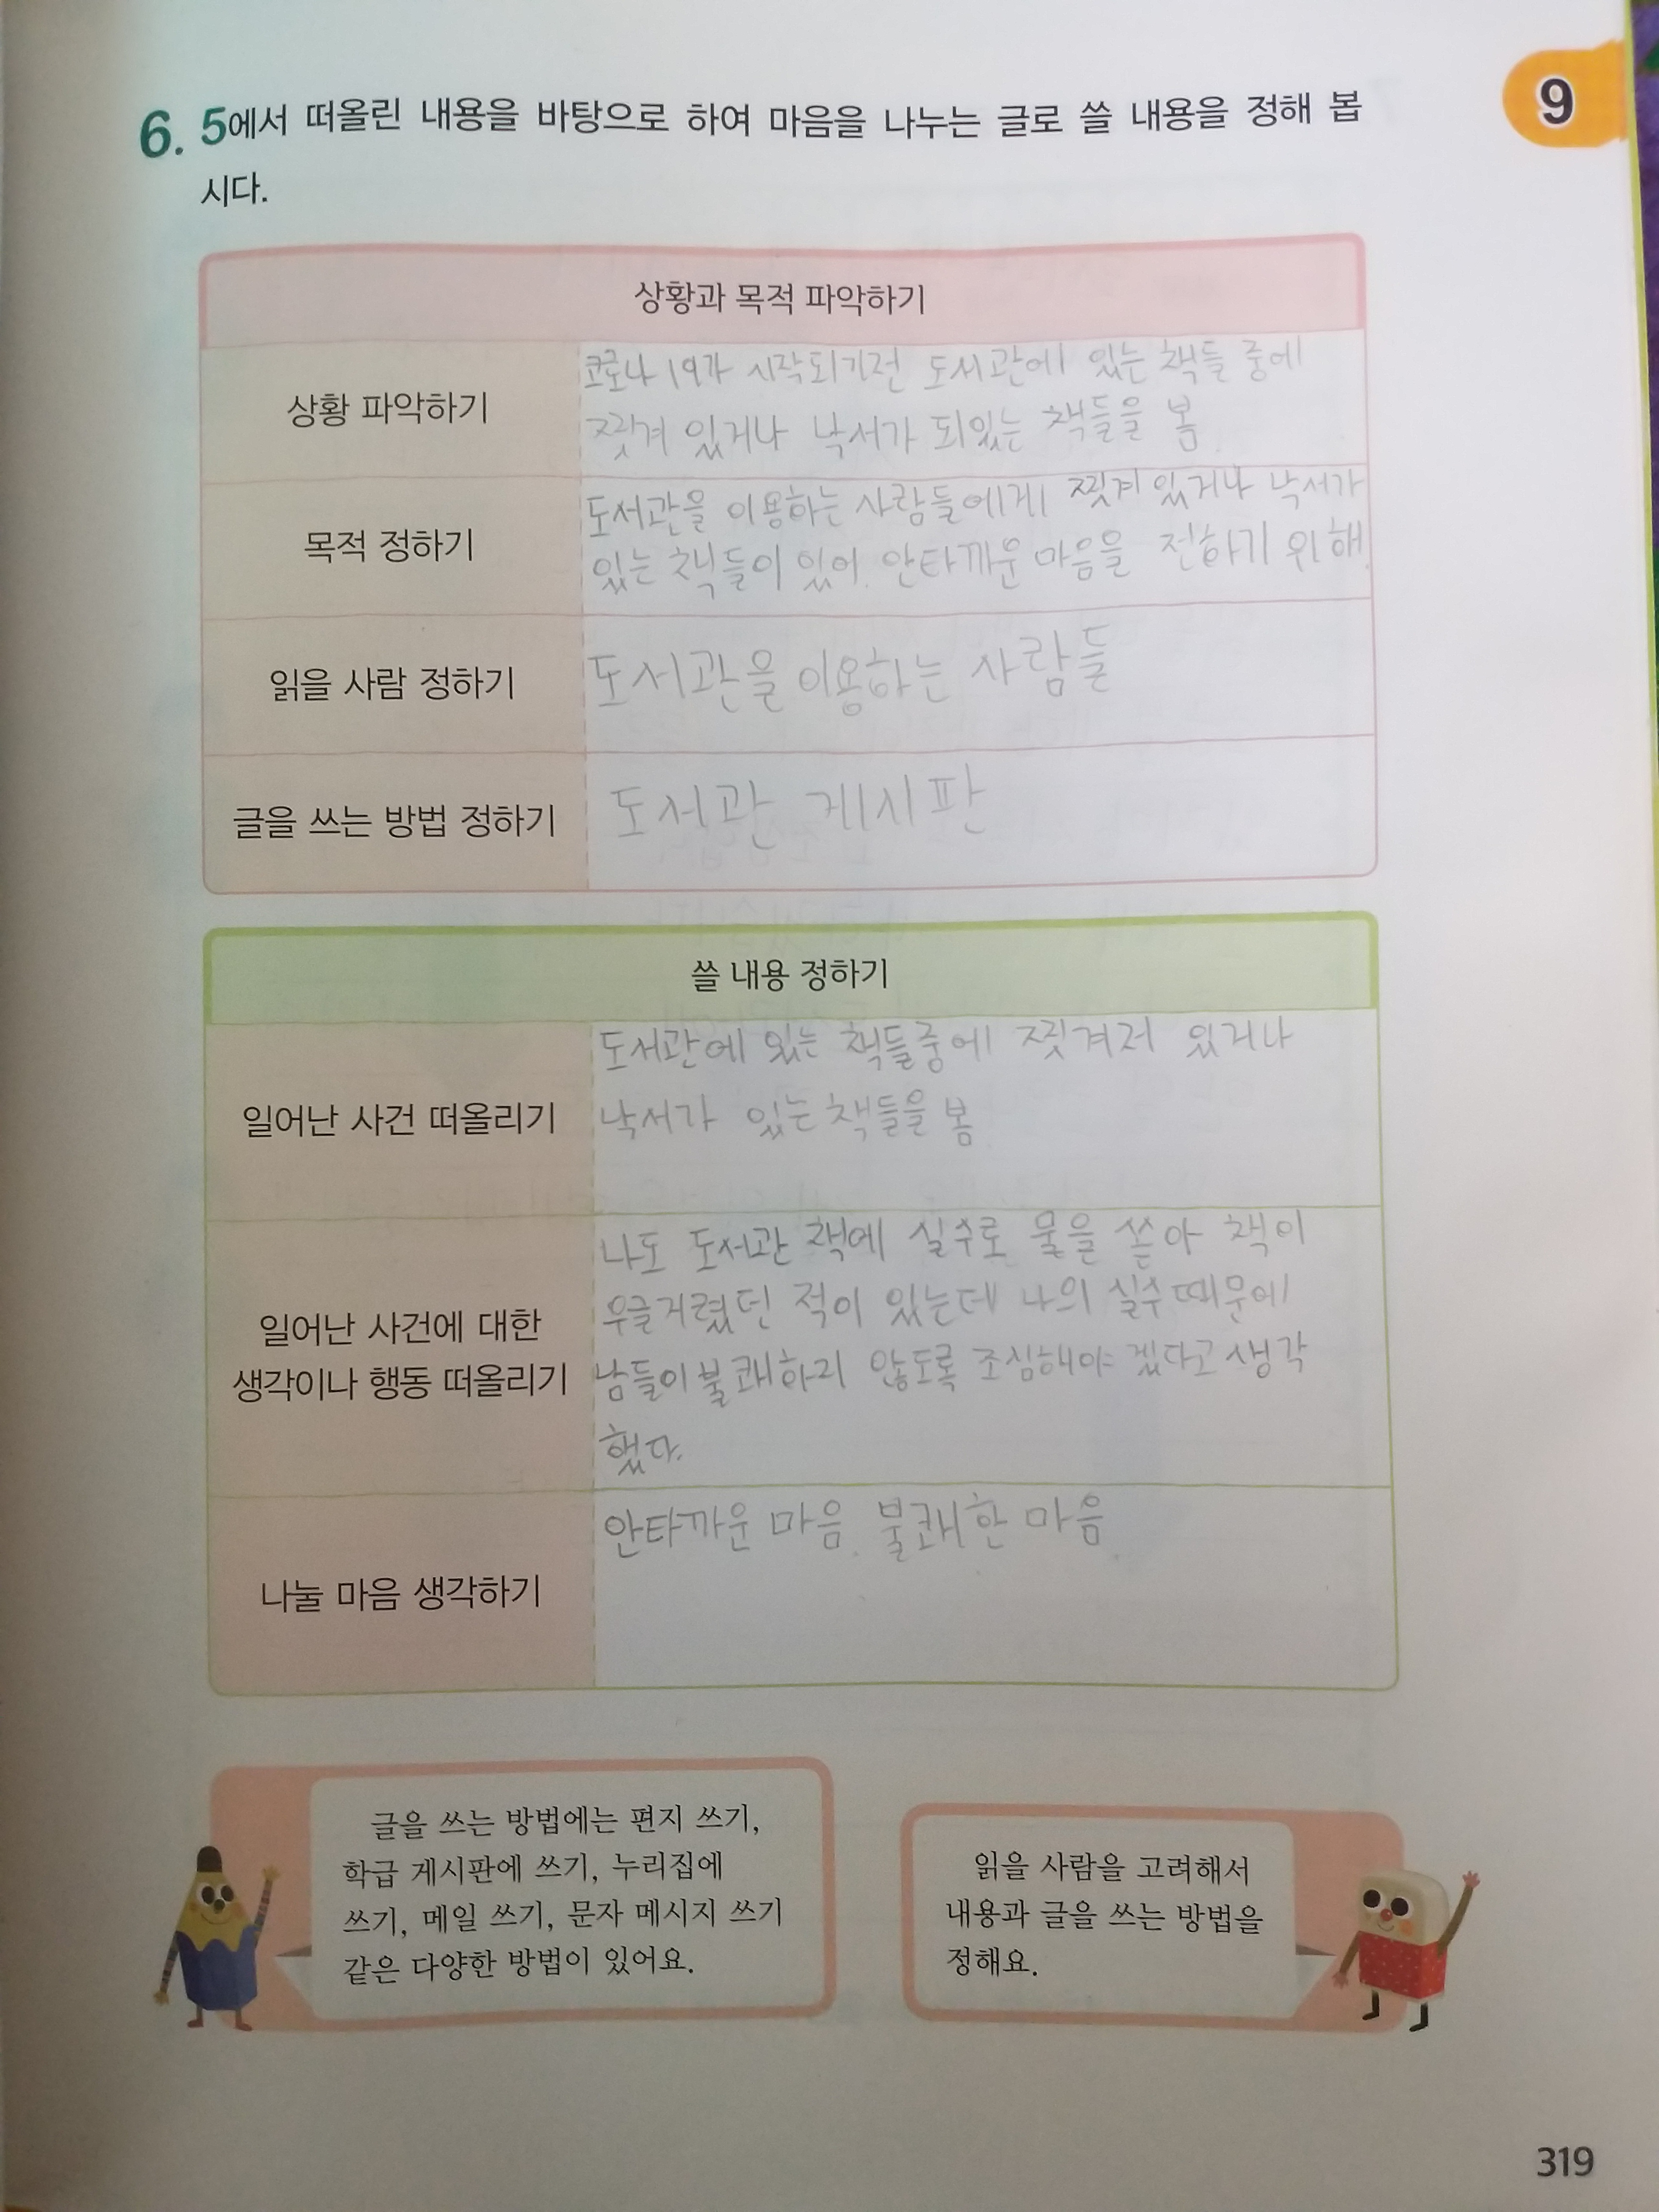 9
6. 5에서 떠올린 내용을 바탕으로 하여 마음을 나누는 글로 쓸 내용을 정해 봅
시다.
상황과 목적 파악하기
상황 파악하기
코로나 19가 시작되기전 도서관에 있는 책들 중에
찢겨 있거나 낙서가 되있는 책들을 봄
목적 정하기
도서관을 이용하는 사람들에게 찢겨 있거나 낙서가
있는 책들이 있어 안타까운 마음을 전하기 위해.
읽을 사람 정하기
도서관을 이용하는 사람들
글을 쓰는 방법 정하기
도서관 게시판
쓸 내용 정하기
일어난 사건 떠올리기
도서관에 있는 책들중에 찢겨저 있거나
낙서가 있는 책들을 봄
일어난 사건에 대한
생각이나 행동 떠올리기
나도 도서관 책에 실수로 물을 쏟아 책이
우글거렸던 적이 있는데 나의 실수 때문에
남들이 불쾌하리 않도록 조심해야 겠다고 생각
했다.
나눌 마음 생각하기
안타까운 마음. 불쾌한 마음.
글을 쓰는 방법에는 편지 쓰기,
학급 게시판에 쓰기, 누리집에
쓰기, 메일 쓰기, 문자 메시지 쓰기
같은 다양한 방법이 있어요.
읽을 사람을 고려해서
내용과 글을 쓰는 방법을
정해요.
319